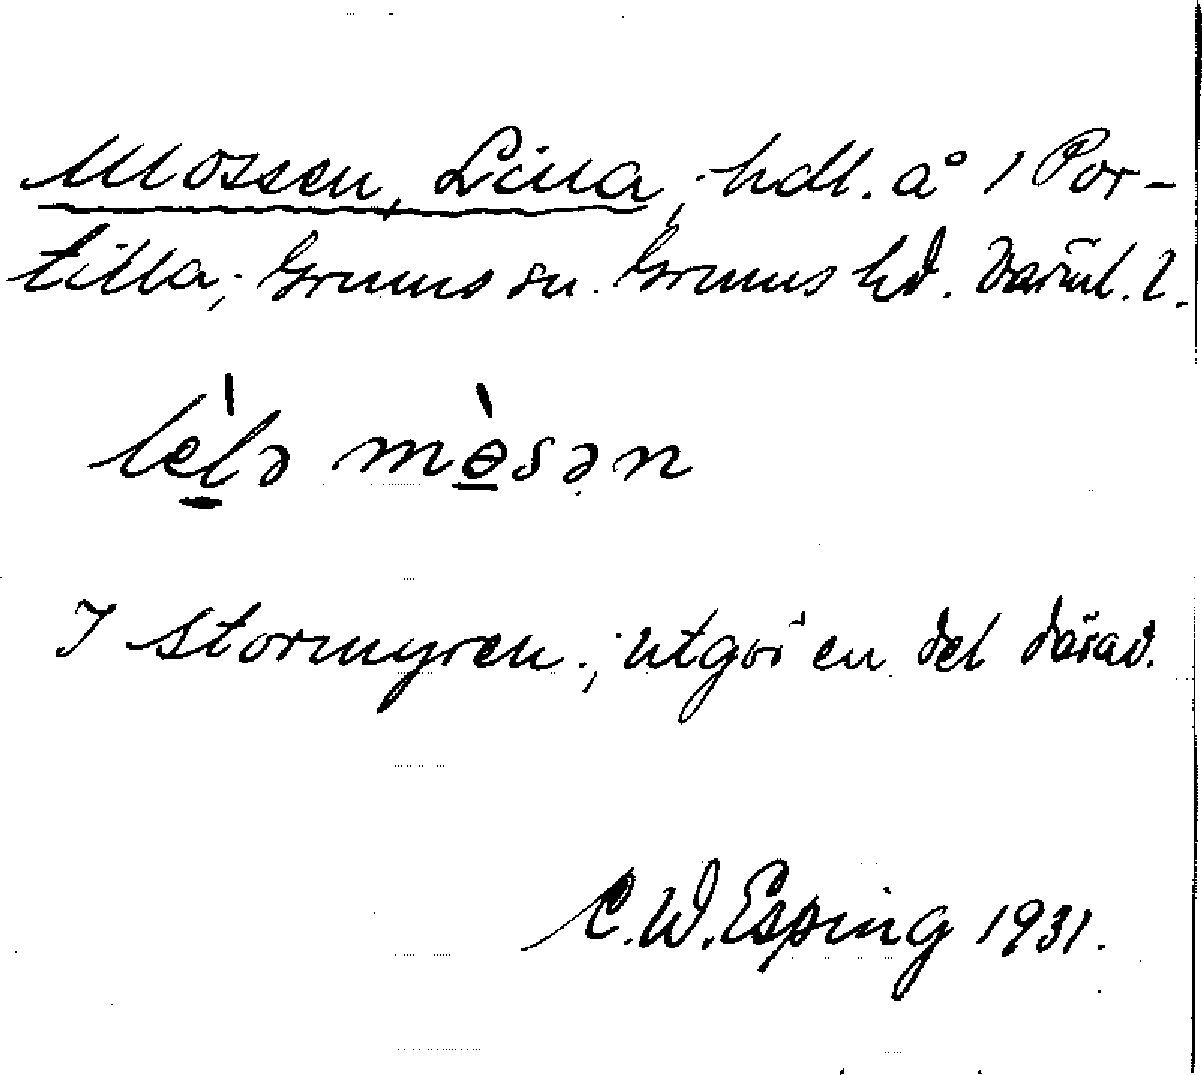 Mossen, Lilla; hdl. å 1 Por-
tilla; Grums sn. Grums hd. Värml. l.
lè̠lə mɵ̠̀sən
I Stormyren.; utgör en del därav.
C. W. Esping 1931.